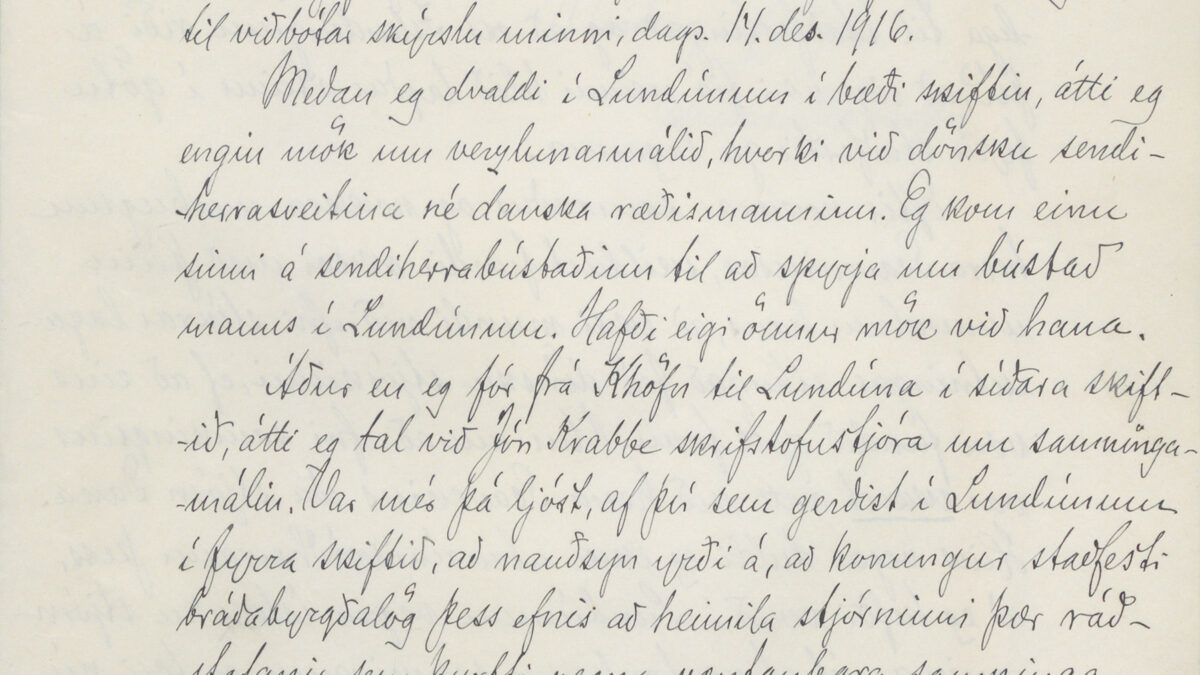 til viðbótar skýrslu minni, dags. 14. des. 1916.
Meðan eg dvaldi í Lundúnum í bæði skiftin, átti eg
engin mök um verzlunarmálið, hvorki við dönsku sendi-
-herrasveitina né danska ræðismanninn. Eg kom einu
sinni á sendiherrabústaðinn til að spyrja um bústað
manns í Lundúnum. Hafði eigi önnur mök við hana.
Áður en eg fór frá Khöfn til Lundúna í síðara skift-
-ið, átti eg tal við Jón Krabbe skrifstofustjóra um samninga-
-málin. Var mér þá ljóst, af því sem gerðist í Lundúnum
í fyrra skiftið, að nauðsyn yrði á, að konungur staðfesti
bráðabyrgðalög þess efnis að heimila stjórninni þær ráð-